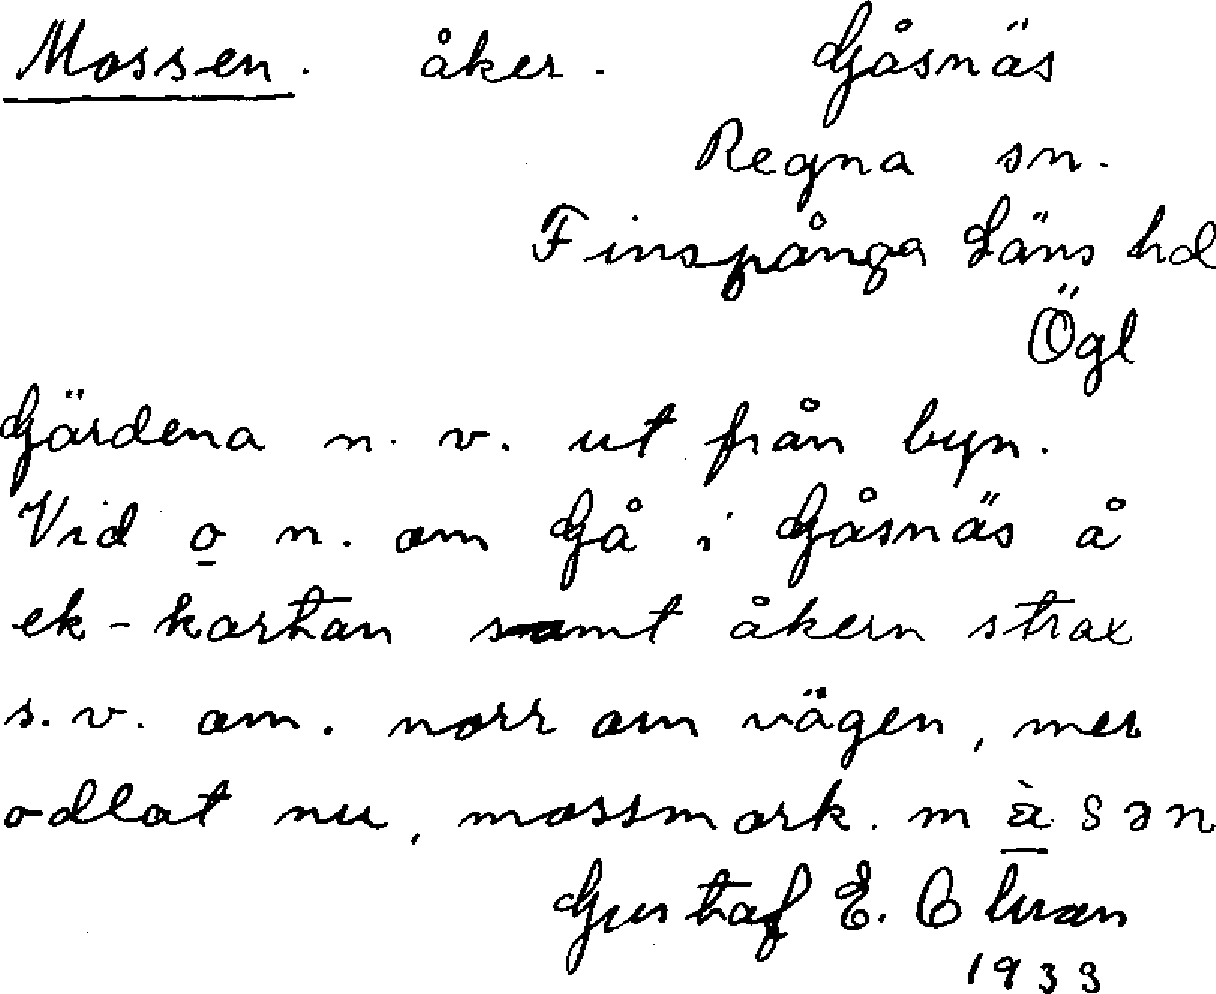 Mossen. åker. Gåsnäs
Regna sn.
Finspånga Läns hd
Ögl
Gärdena n. v. ut från byn.
Vid o n. om Gå i Gåsnäs å
ek-kartan samt åkern strax
s.v. om. norr om vägen, mer
odlat nu, mossmark. m
Gustaf E.
1933